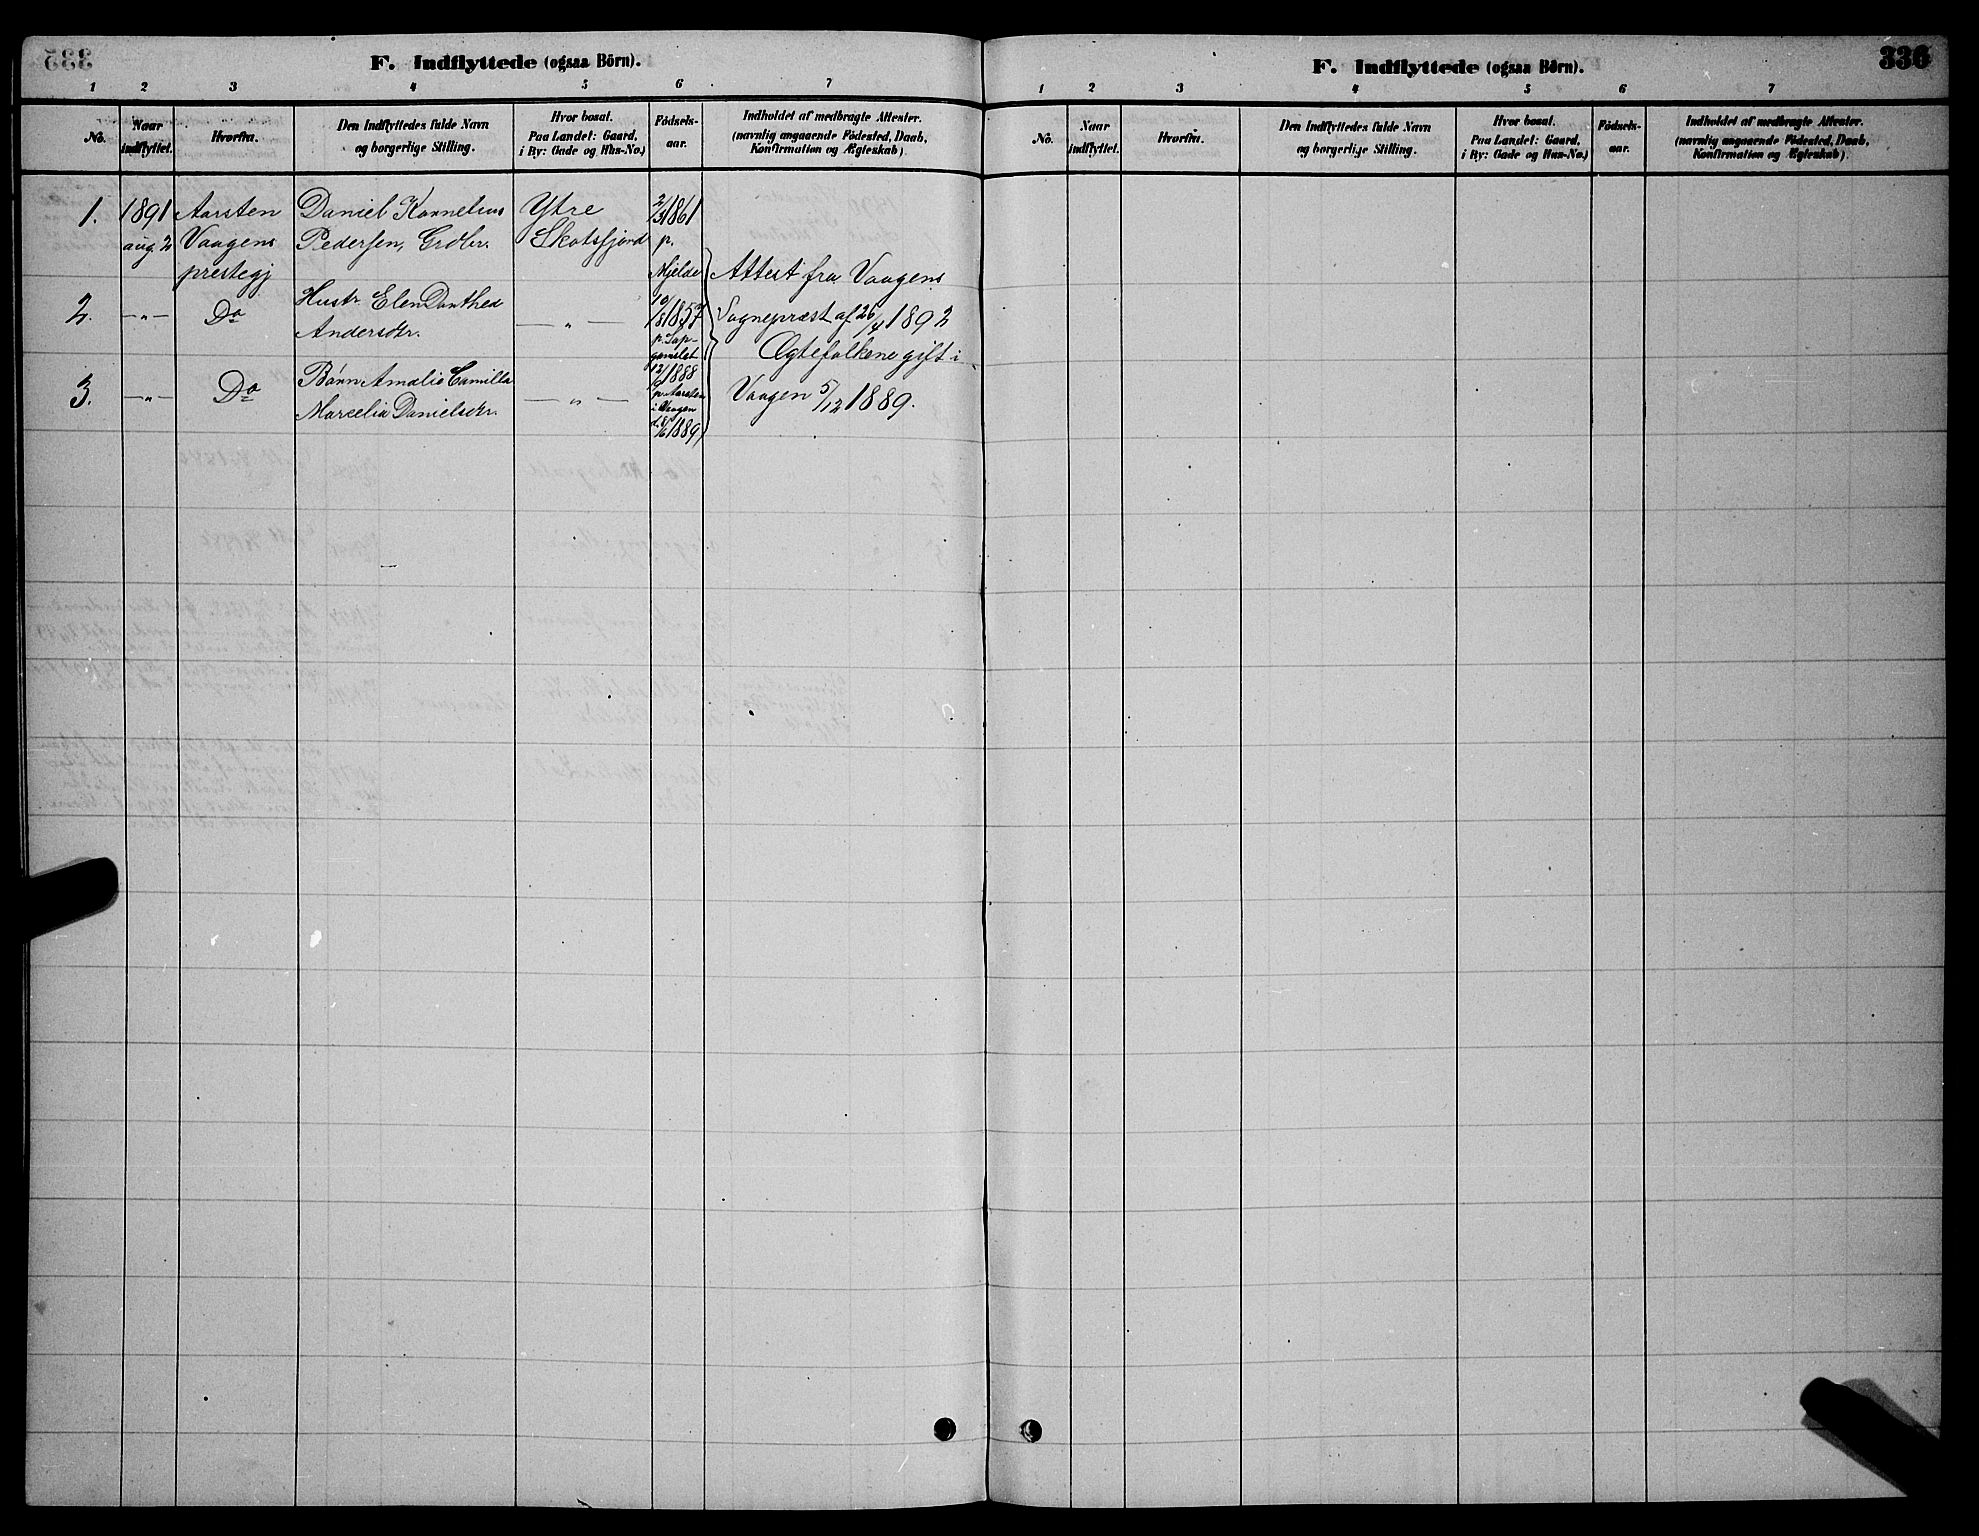 F. Indflyttede (ogsaa Börn).
1 2 3 4 5 6 7
No.
Naar
indflyttet.
Hvorfra.
Den Indflyttedes fulde Navn
og borgerlige Stilling.
Hvor bosat.
Paa Landet: Gaard,
i By: Gade og Hus-No.)
Födsels-
aar.
Indholdet af medbragte Attester.
(navnlig angaaende Födested, Daab,
Konfirmation og Ægteskab).
1.
1891
aug 2
Aarsten
Vaagens
prestegj
Daniel Kornelius
Pedersen, Grdbr.
Ytre
Skotsfjord
2/3 1861
p.
Mjelde
2.
—"—
Do
Hustr. Elen Dorthea
Andersdtr.
—"—
3.
—"—
Do
Barn Amalie Camilla
Marcelia Danielsdtr.
—"—
12/ 1888
p. Aarsten
i Vaagen
1889
Attest fra Vaagens
Sognepræst af 26/4 1892
Ægtefolkene gift i
Vaagen 5/12 1889.
336
F. Indflyttede (ogsaa Börn).
1 2 3 4 5 6 7
No.
Naar
indflyttet.
Hvorfra.
Den Indflyttedes fulde Navn
og borgerlige Stilling.
Hvor bosat.
Paa Landet: Gaard,
i By: Gade og Hus-No.)
Födsels-
aar.
Indholdet af medbragte Attester.
(navnlig angaaende Födested, Daab,
Konfirmation og Ægteskab).